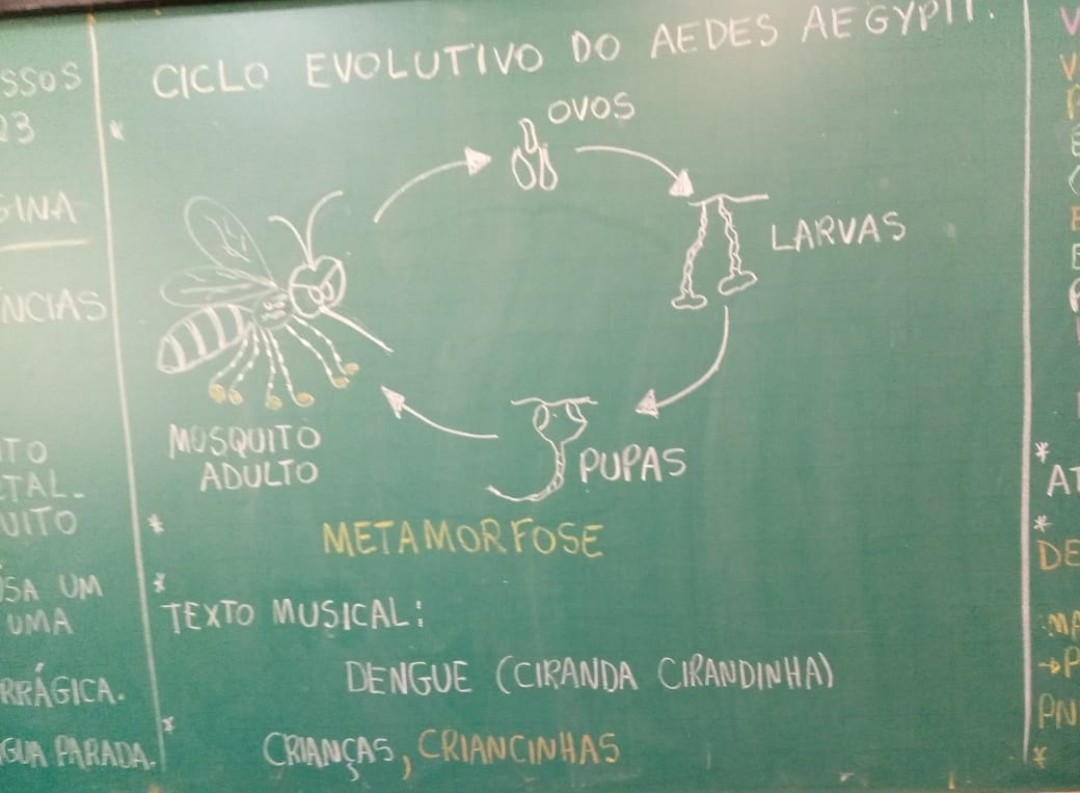 CICLO EVOLUTIVO DO AEDES AEGYPTI.
OVOS
LARVAS
PUPAS
MOSQUITO
ADULTO
METAMORFOSE
TEXTO MUSICAL:
DENGUE (CIRANDA CIRANDINHA)
CRIANÇAS, CRIANCINHAS
SSOS
23
GINA
NCIAS
TO
TAL.
UITO
USA UM
UMA
RRÁGICA.
GUA PARADA.
V
V
*
AT
*
DE
MA
→P
PN
*